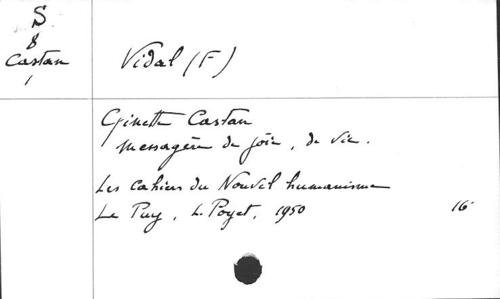 S
8
Castan
1
Vidal (F)
Ginette Castan
messagère de joie, de vie.
Les cahiers du Nouvel humanisme
Le Puy, L. Poyet, 1950 16°